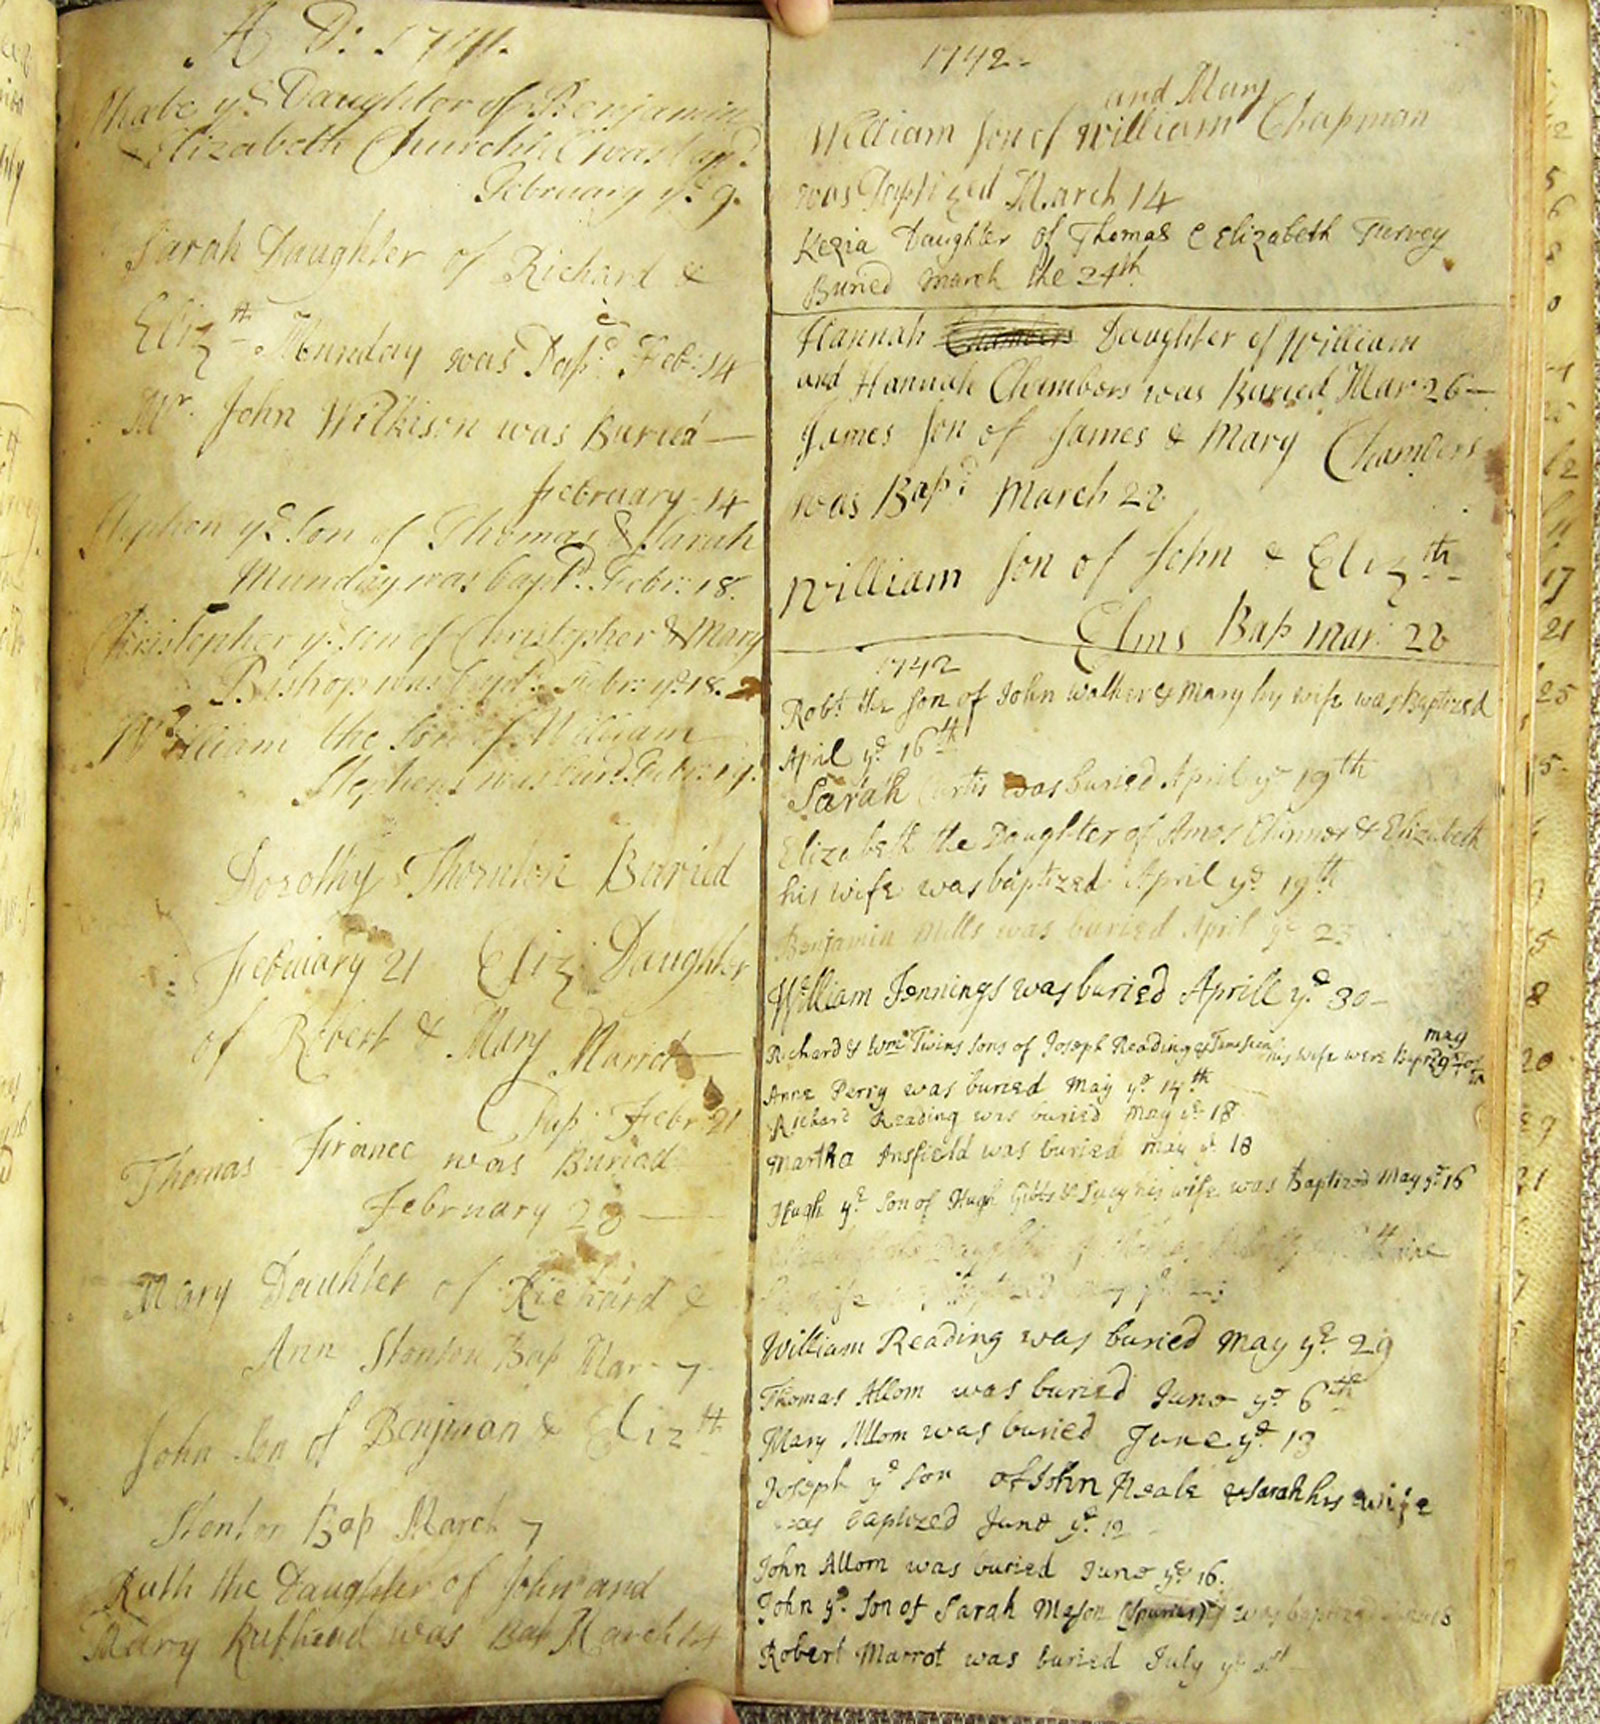 A D: 1741.
Phabe yᵉ Daughter of Benjamin
Elizabeth Churchhil was bapᵈ.
February yᵉ 9.
Sarah Daughter of Richard &
Elizᵗʰ Munday was Bapᵈ Feb: 14
Mʳ. John Wilkison was Buried
February 14
Stephen yᵉ Son of Thomas & Sarah
Munday was bapᵈ. Febr: 18.
Christopher yᵉ Son of Christopher & Mary
Bishop was bapᵈ. Febr: yᵉ 18.
William the Son of William
Stephens was Burd. Febr: 19.
Dorothy Thornton Buried
February 21 Eliz: Daughter
of Robert & Mary Marriot
Bap: Febr 21
Thomas France was Buried
February 28
Mary Dauhter of Richard &
Ann Stonton Bap Mar 7
John Son of Benjman & Elizᵗʰ
Stonton Bap March 7
Ruth the Daughter of John and
Mary Rufhead was Bap March 14
1742
and Mary
William Son of William Chapman
was Baptized March 14
Kezia Daughter of Thomas & Elizabeth Turvey
Buried March the 24ᵗʰ.
Hannah Chambers Daughter of William
and Hannah Chambers was Buried Mar 26
James Son of James & Mary Chambers
was Bapᵈ March 28
William Son of John & Elizᵗʰ
Elms Bap Mar: 28
1742
Robᵗ the Son of John Walker & Mary his wife was Baptized
April yᵉ 16ᵗʰ
Sarah Curtis was buried April yᵉ 19ᵗʰ
Elizabeth the Daughter of Amos & Elizabeth
his wife was baptized April yᵉ 19ᵗʰ
Benjamin Mills was buried April yᵉ 23
William Jennings was buried Aprill yᵉ 30
may
Richard & Wᵐ Twins Sons of Joseph Reading & his wife were Bapᵗ
Anne Perry was buried May yᵉ 14ᵗʰ
Richard Reading was buried May yᵉ 18
Martha Ansfield was buried may yᵉ 18
Hugh yᵉ Son of Hugh Gibbs & Lucy his wife was Baptized May yᵉ 16
the Daughter of
his wife was Baptized may yᵉ
William Reading was buried May yᵉ 29
Thomas Allom was buried June yᵉ 6ᵗʰ
Mary Allom was buried June yᵉ 13
Joseph yᵉ Son of John Neale & Sarah his wife
was baptized June yᵉ 12
John Allom was buried June yᵉ 16.
John yᵉ Son of Sarah Mason (Spurius) was baptized
Robert Marrot was buried July yᵉ